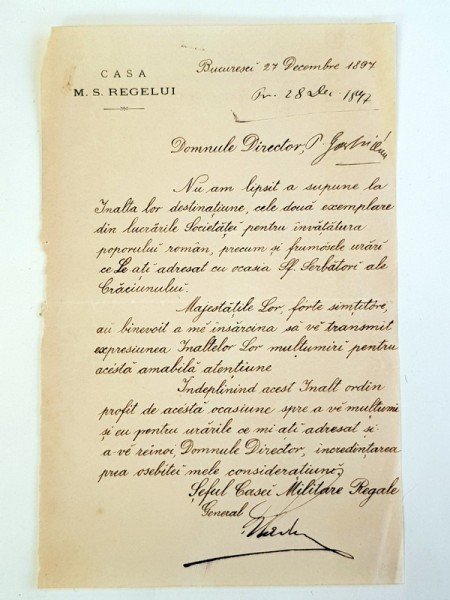 CASA
M. S. REGELUI
Bucuresci 27 Decembre 1897
Pr. 28 Dec 1897
Domnule Director, P.
Nu am lipsit a supune la
Inalta lor destinațiune, cele două exemplare
din lucrările Societăței pentru învățătura
poporului român, precum și frumósele urări
ce Le ați adresat cu ocasia Sf. Serbători ale
Crăciunului.
Majestățile Lor, forte simțitóre,
au binevoit a mĕ însărcina să vĕ transmit
expresiunea Inaltelor Lor mulțumiri pentru
acéstă amabilă atențiune
Indeplinind acest Inalt ordin
profit de acéstă ocasiune spre a vĕ mulțumi
și eu pentru urările ce mi ați adresat și
a vĕ reinoi, Domnule Director, incredințarea
prea osebitei mele considerațiuni,
Șeful Casei Militare Regale
General